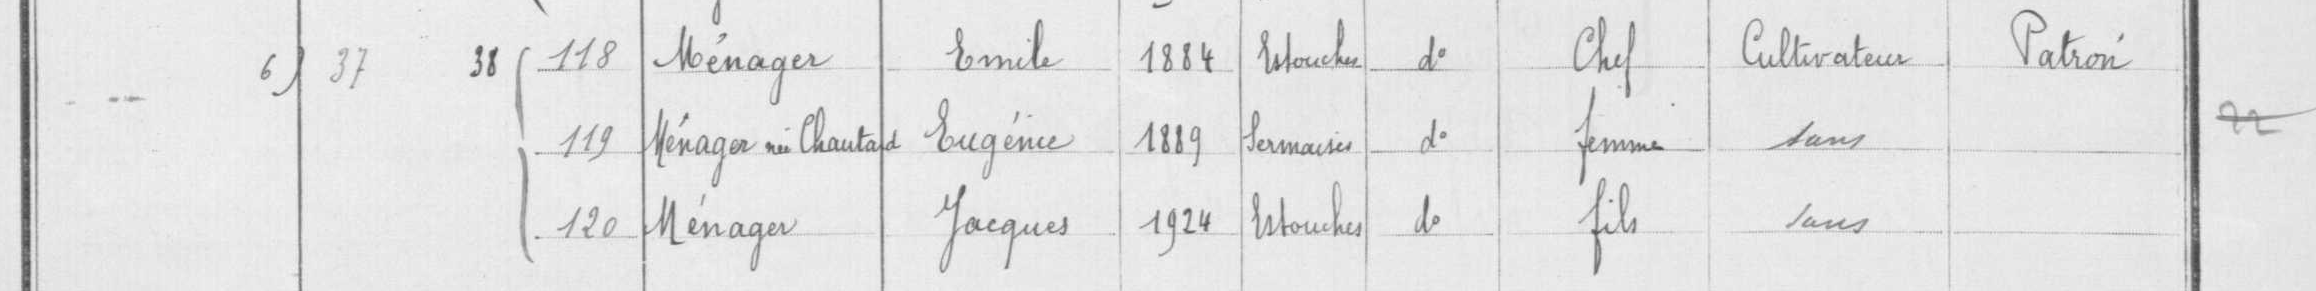 6) 37 38 118 Ménager Emile 1884 Estouches d° Chef Cultivateur Patron
119 Ménager née Chautard Eugénie 1889 Sermaises d° femme sans
120 Ménager Jacques 1924 Estouches d° fils sans